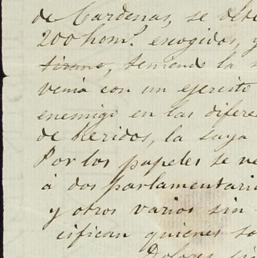 de Cardenas, se debe
200 homs. escogidos, y
tirano, teniendo la
venia con un ejercito
enemigo en las difere
de heridos, la suya
Por los papeles se ve
á dos parlamentario
y otros varios sin
cifican quienes so
Dolores